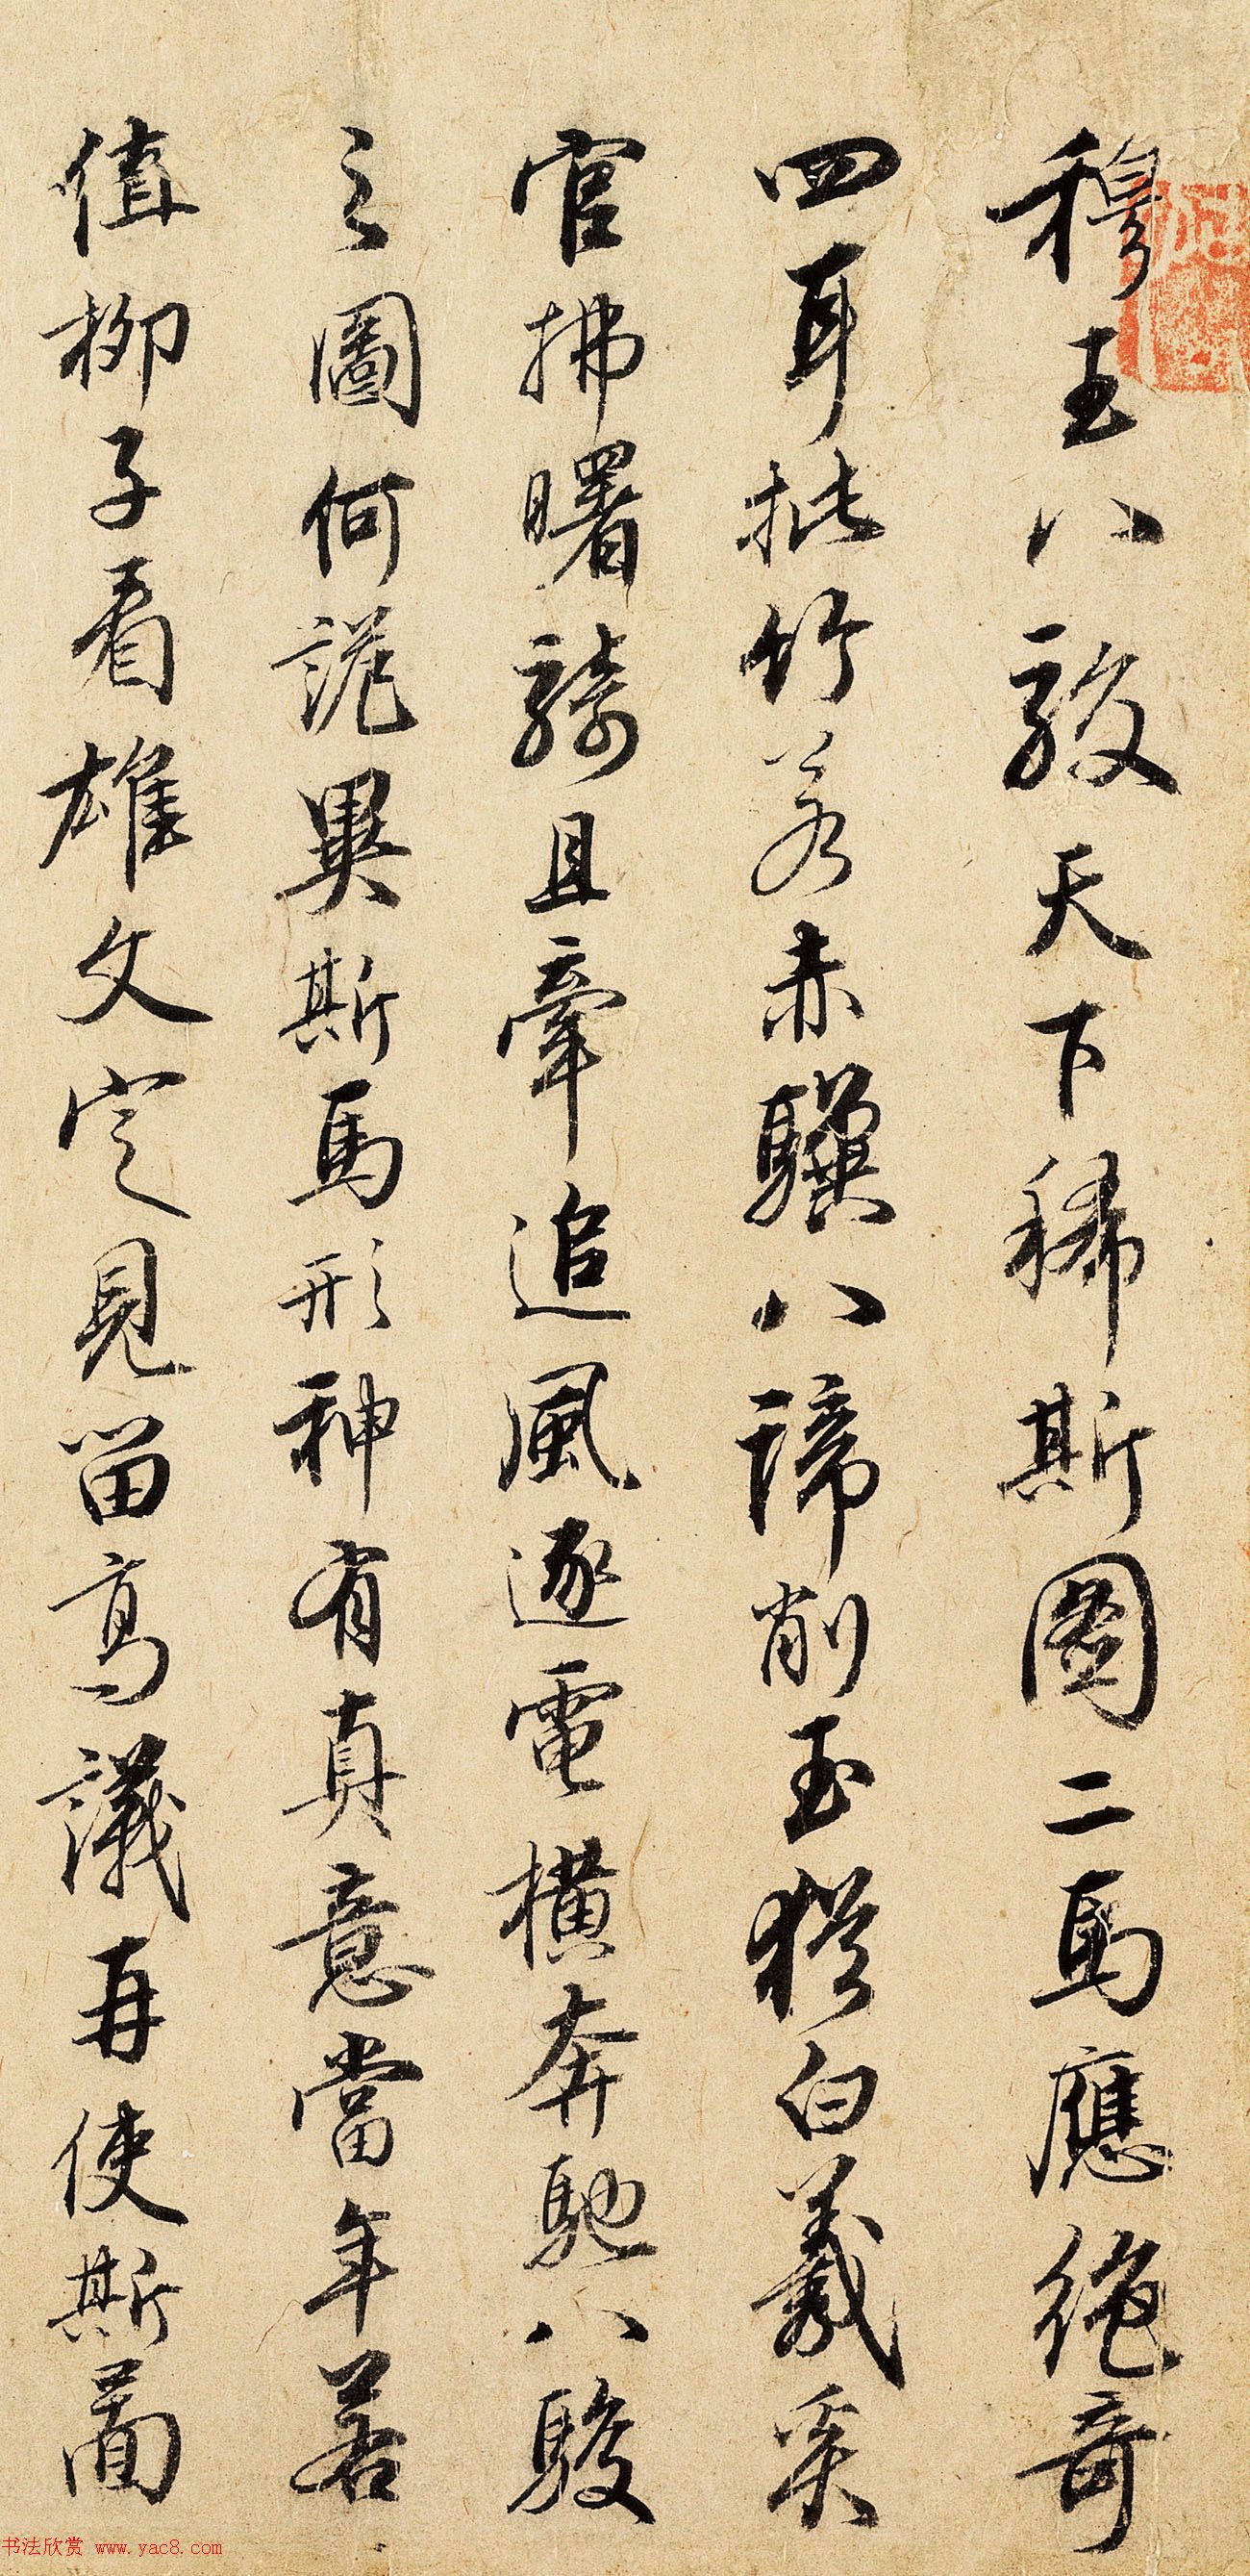 穆王八駿天下稀斯圖二馬應絶奇
四耳批竹若赤驥八蹄削玉猶白羲奚
官拂曙騎且牽追風逐電橫奔馳八駿
之圖何詭異斯馬形神有真意當年若
值柳子看雄文定見留高議再使斯圖
书法欣赏 www.yac8.com